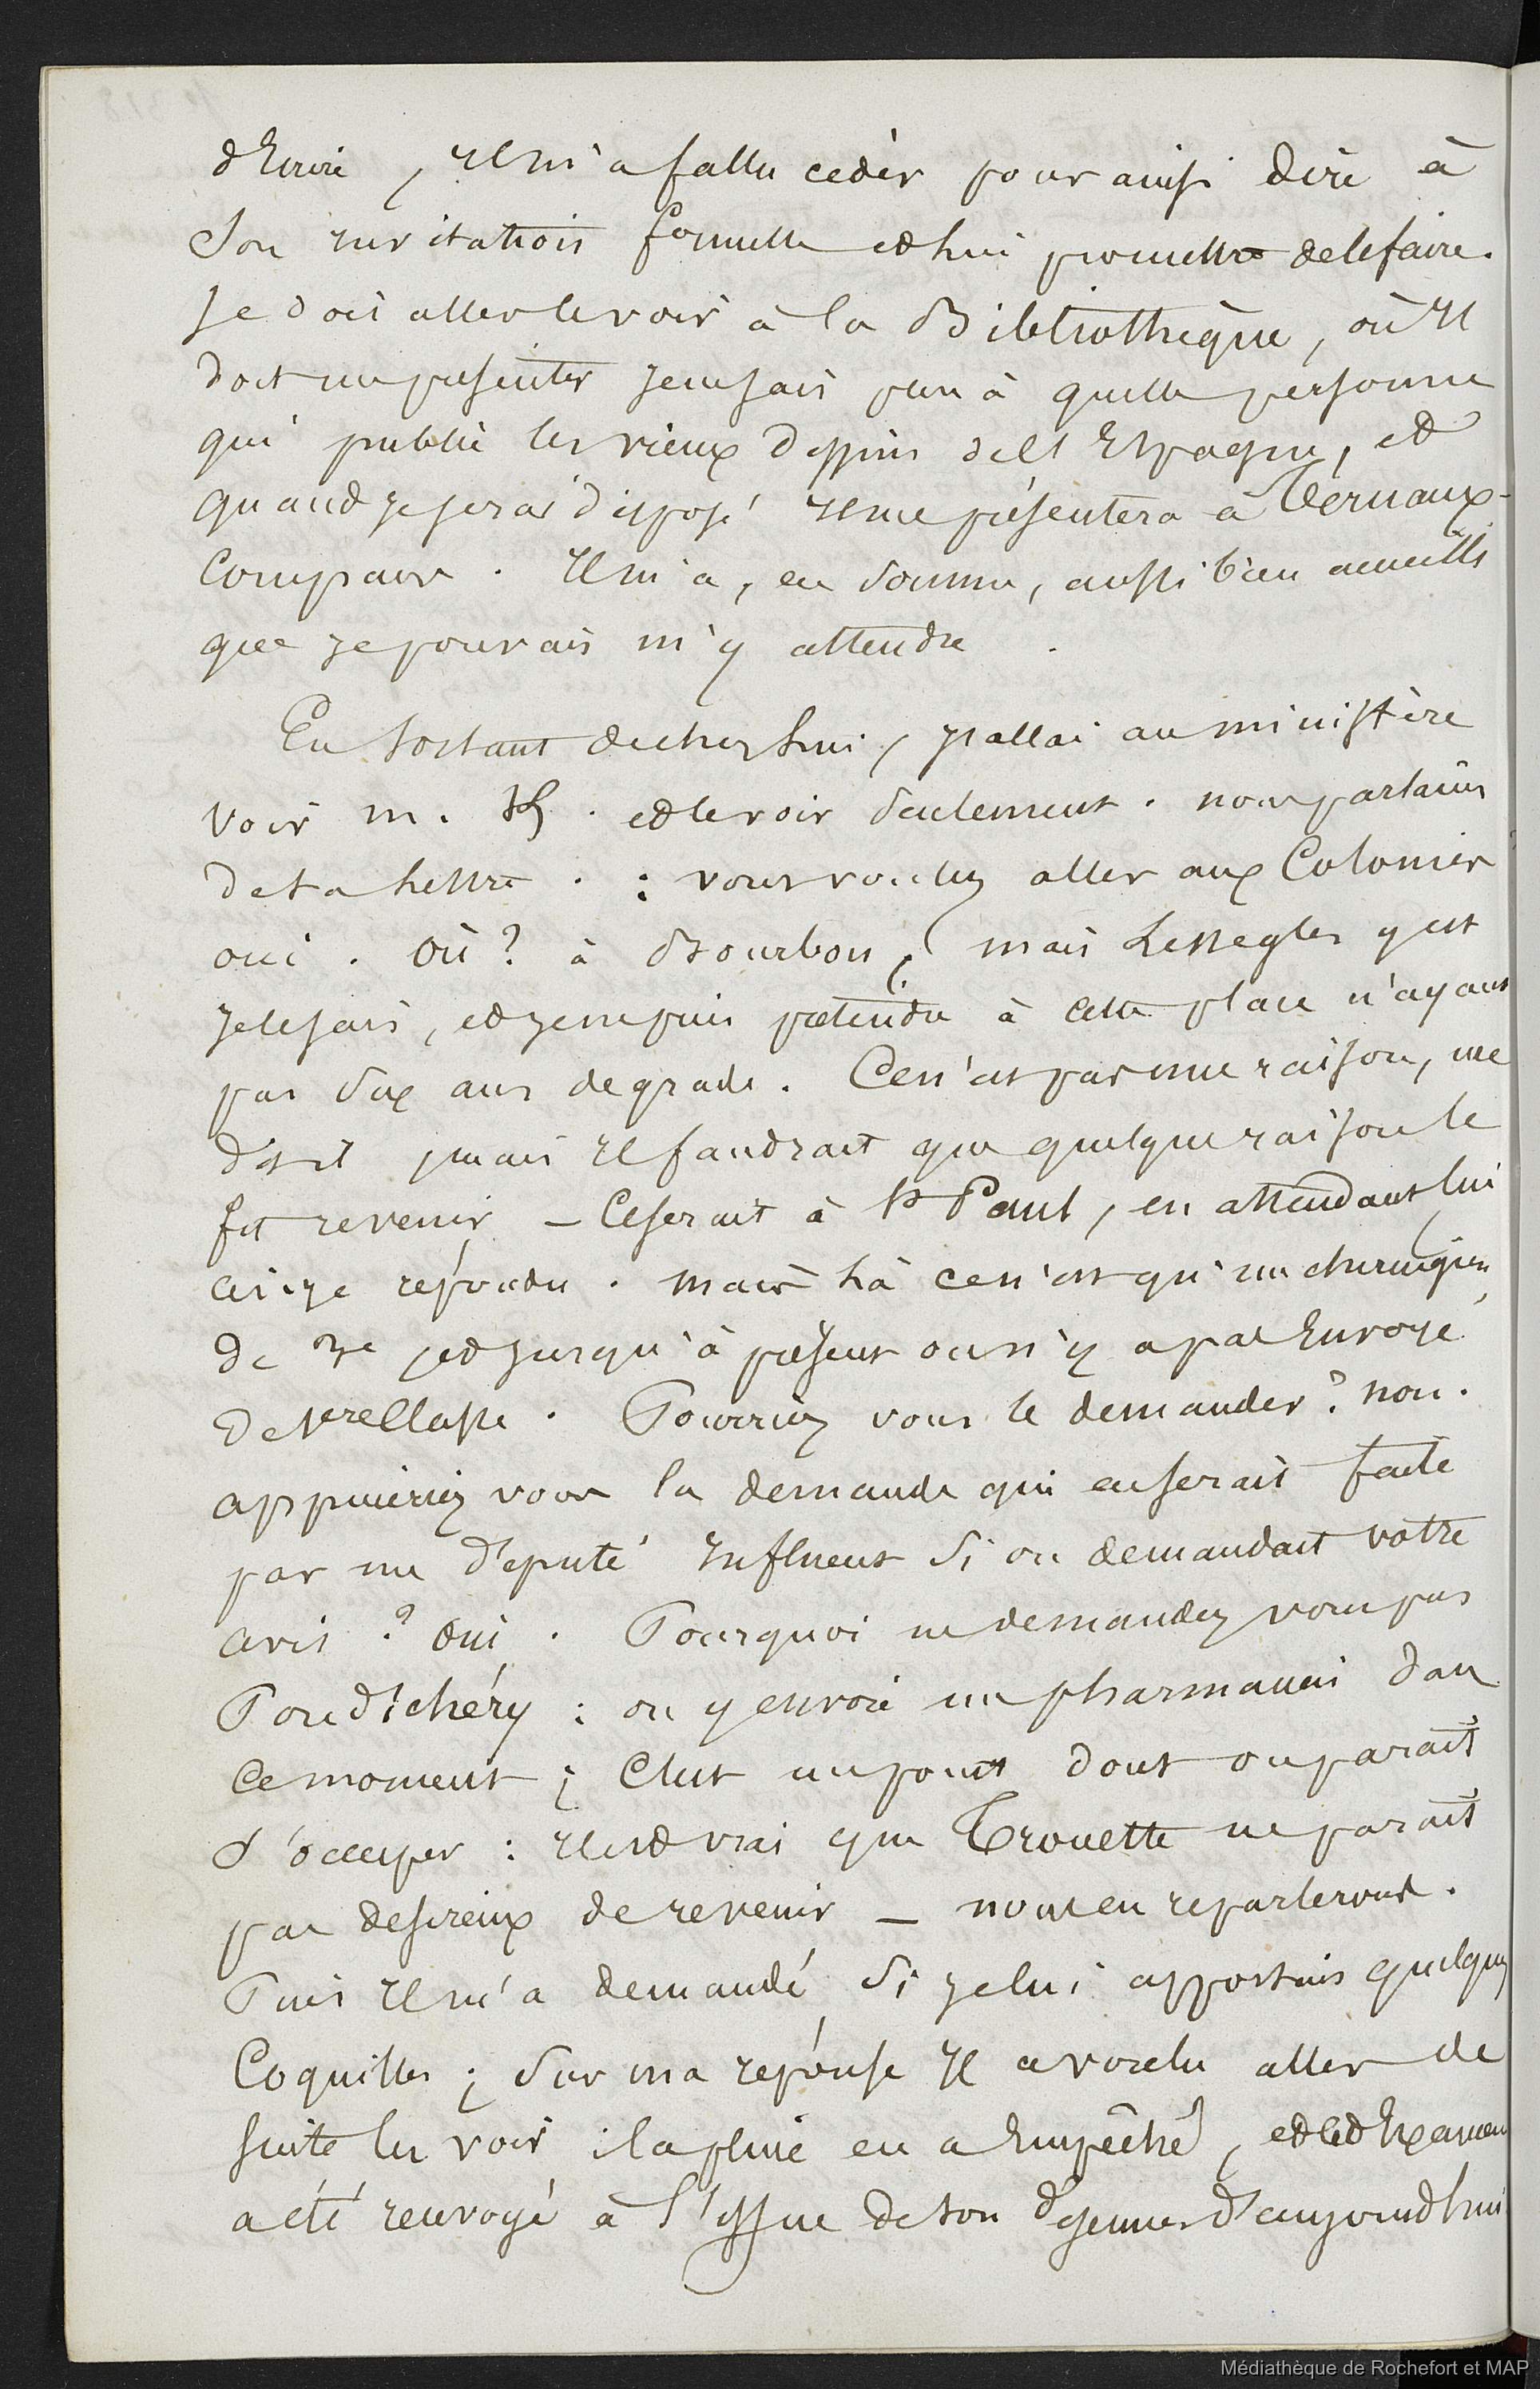 d'Ecrire, Il m'a fallu cedèr pour ainsi dire à
Son Invitation formelle et lui promettre de le faire.
Je dois aller le voir à la Bibliothèque, où Il
doit me présenter Je ne sais plus à quelle personne
qui publie les vieux dessins de l'Espagne, et
quand Je serai disposé Il me présentera à Ternaux-
Compans. Il m'a, en somme, aussi bien accueilli
que Je pouvais m'y attendre.
En sortant de chez lui, J'allai au ministère
voir m. K. et le voir seulement. nous parlâmes
de ta lettre. : vous voulez aller aux Colonies
oui. Où? à Bourbon, mais Lesnagles y est
Je le sais, et Je ne puis prétendre à cette place n'ayant
pas Six ans de grade. Ce n'est pas une raison, me
dit-il, mais Il faudrait que quelque raison le
fit revenir — Ce serait à St Paul, en attendant lui
ai-je répondu. mais là ce n'est qu'un chirurgien
de 3e, et Jusqu'à présent on n'y a pas Envoyé
de 1re Classe. Pourriez vous le demander? non.
appuieriez vous la demande qui en serait faite
par un député Influent Si on demandait votre
avis? oui. Pourquoi ne demandez vous pas
Pondichéry : on y envoie un pharmacien dans
ce moment ; C'est un point dont on parait
s'occuper : Il est vrai que Trouette ne parait
pas desireux de revenir — nous en reparlerons.
Puis Il m'a demandé Si Je lui apportais quelques
Coquilles ; Sur ma réponse Il a voulu aller de
suite les voir ; la pluie en a Empêché, et cet Examen
a été renvoyé à l'issue de son déjeuner d'aujourd'hui
Médiathèque de Rochefort et MAP